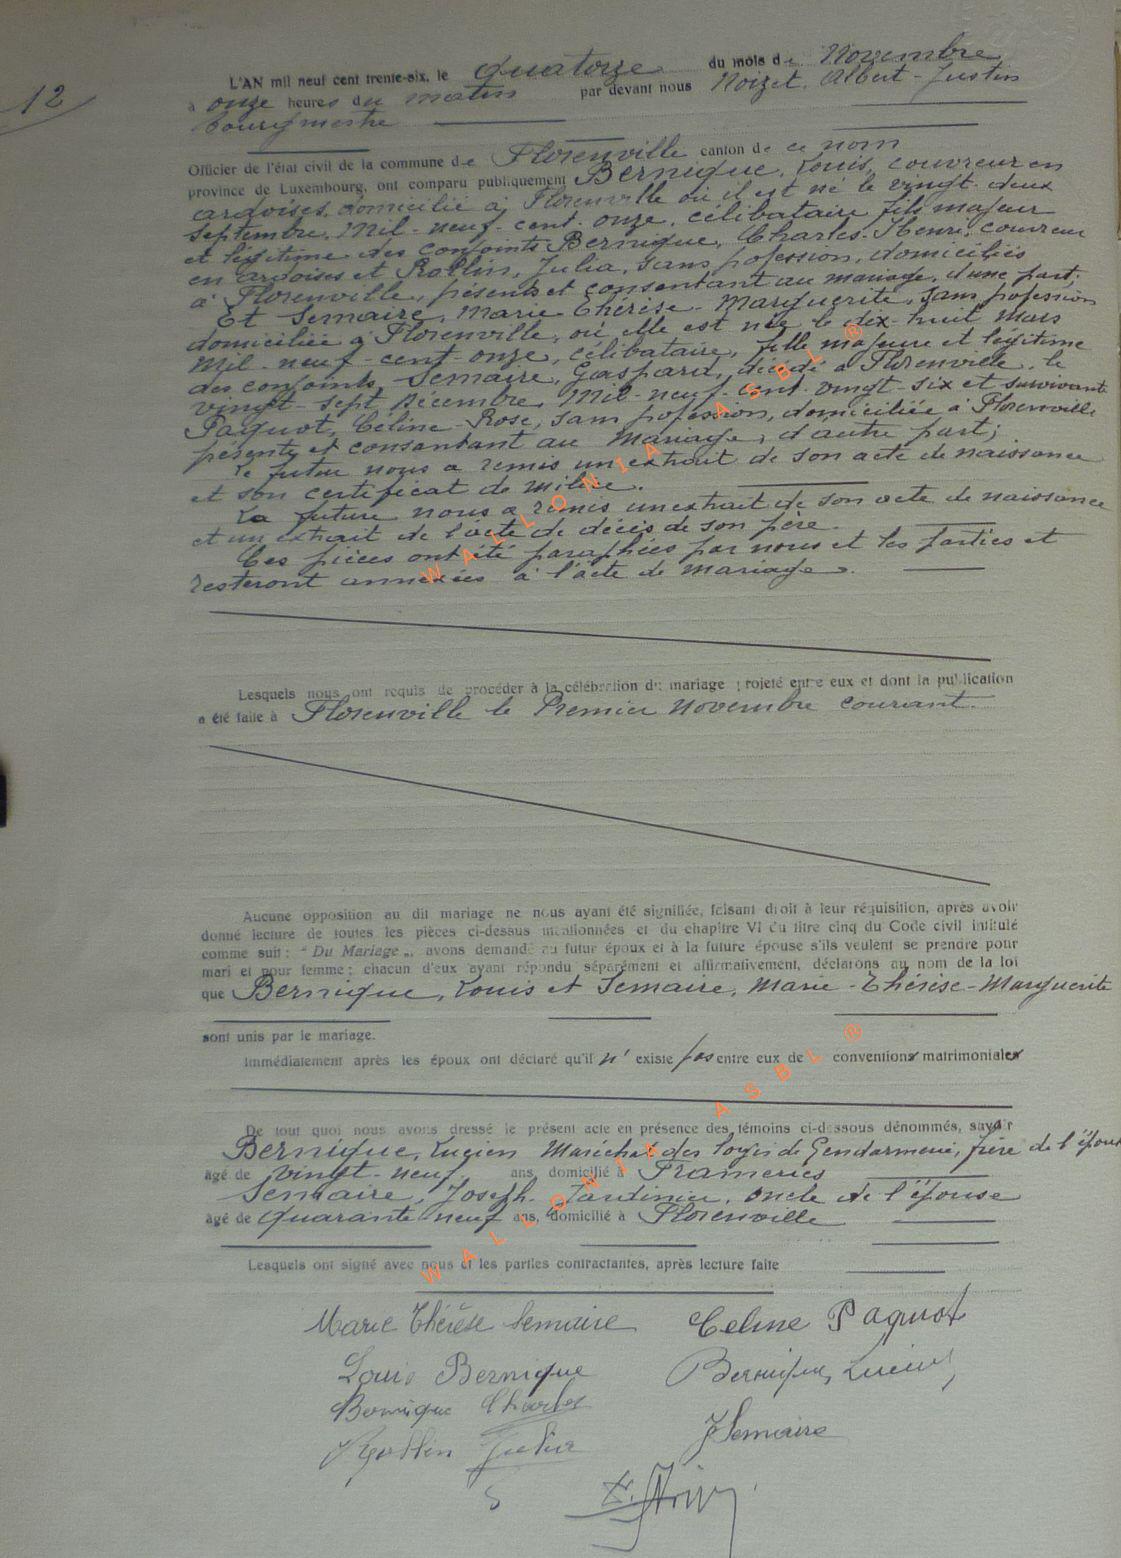 12
L'AN mil neuf cent trente-six, le quatorze du mois de Novembre
à onze heures du matin par devant nous Noizet, Albert-Justin
bourgmestre
Officier de l'état civil de la commune de Florenville canton de ce nom
province de Luxembourg, ont comparu publiquement Bernique, Louis, couvreur en
ardoises, domicilié à Florenville où il est né le vingt-deux
septembre, Mil-neuf-cent-onze, célibataire fils majeur
et légitime des conjoints Bernique, Charles-Henri, couvreur
en ardoises et Rollin, Julia, sans pofession, domiciliés
à Florenville, présents et consentant au mariage, d'une part;
Et Semaire, Marie-Thérèse-Marguerite, sans pofession
domiciliée à Florenville, où elle est née le dix-huit Mars
Mil-neuf-cent-onze, célibataire, fille majeure et légitime
des conjoints Semaire, Gaspard, décédé à Florenville, le
vingt-sept Décembre, Mil-neuf-cent-vingt-six et survivante
Paquot, Céline-Rose, sans pofession, domiciliée à Florenville
présente et consentant au Mariage, d'autre part;
Le futur nous a remis un extrait de son acte de naissance
et son certificat de milice.
La future nous a remis un extrait de son acte de naissance
et un extrait de l'acte de décès de son père.
Ces pièces ont été paraphées par nous et les parties et
resteront annexées à l'acte de mariage.
Lesquels nous ont requis de procéder à la célébration du mariage projeté entre eux et dont la publication
a été faite à Florenville le Premier Novembre courant.
Aucune opposition au dit mariage ne nous ayant été signifiée, faisant droit à leur réquisition, après avoir
donné lecture de toutes les pièces ci-dessus mentionnées et du chapitre VI du titre cinq du Code civil intitulé
comme suit : " Du Mariage „, avons demandé au futur époux et à la future épouse s'ils veulent se prendre pour
mari et pour femme ; chacun d'eux ayant répondu séparément et affirmativement, déclarons au nom de la loi
que Bernique, Louis et Semaire, Marie-Thérèse-Marguerite
sont unis par le mariage.
Immédiatement après les époux ont déclaré qu'il n' existe pas entre eux de conventions matrimoniales
De tout quoi nous avons dressé le présent acte en présence des témoins ci-dessous dénommés, savoir
Bernique, Lucien Maréchal des logis de Gendarmerie, frère de l'époux
âgé de vingt-neuf ans, domicilié à Frameries
Semaire, Joseph Jardinier, oncle de l'épouse
âgé de quarante-neuf ans, domicilié à Florenville
Lesquels ont signé avec nous et les parties contractantes, après lecture faite
Marie Thérèse Semaire Celine Paquot
Louis Bernique Bernique, Lucien
Bernique Charles
Rollin Julia J Semaire
WALLONIA ASBL ®
WALLONIA ASBL ®